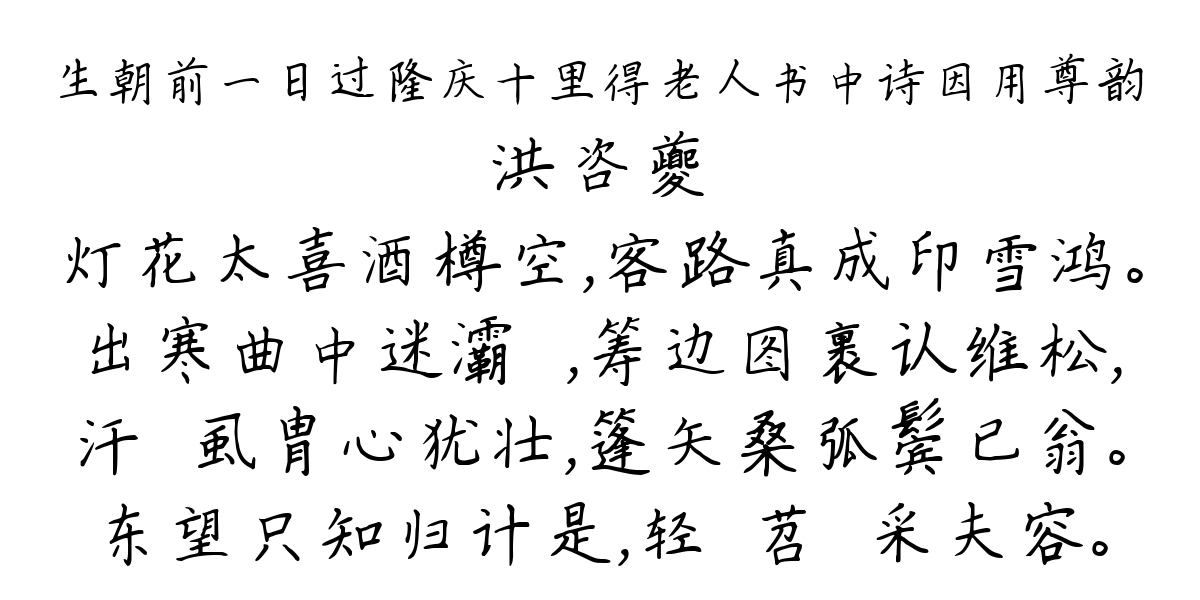 生朝前一日过隆庆十里得老人书中诗因用尊韵
洪咨夔
灯花太喜酒樽空,客路真成印雪鸿。
出寒曲中迷灞 ,筹边图裹认维松,
汗 虱胄心犹壮,篷矢桑弧鬓已翁。
东望只知归计是,轻 苕 采夫容。